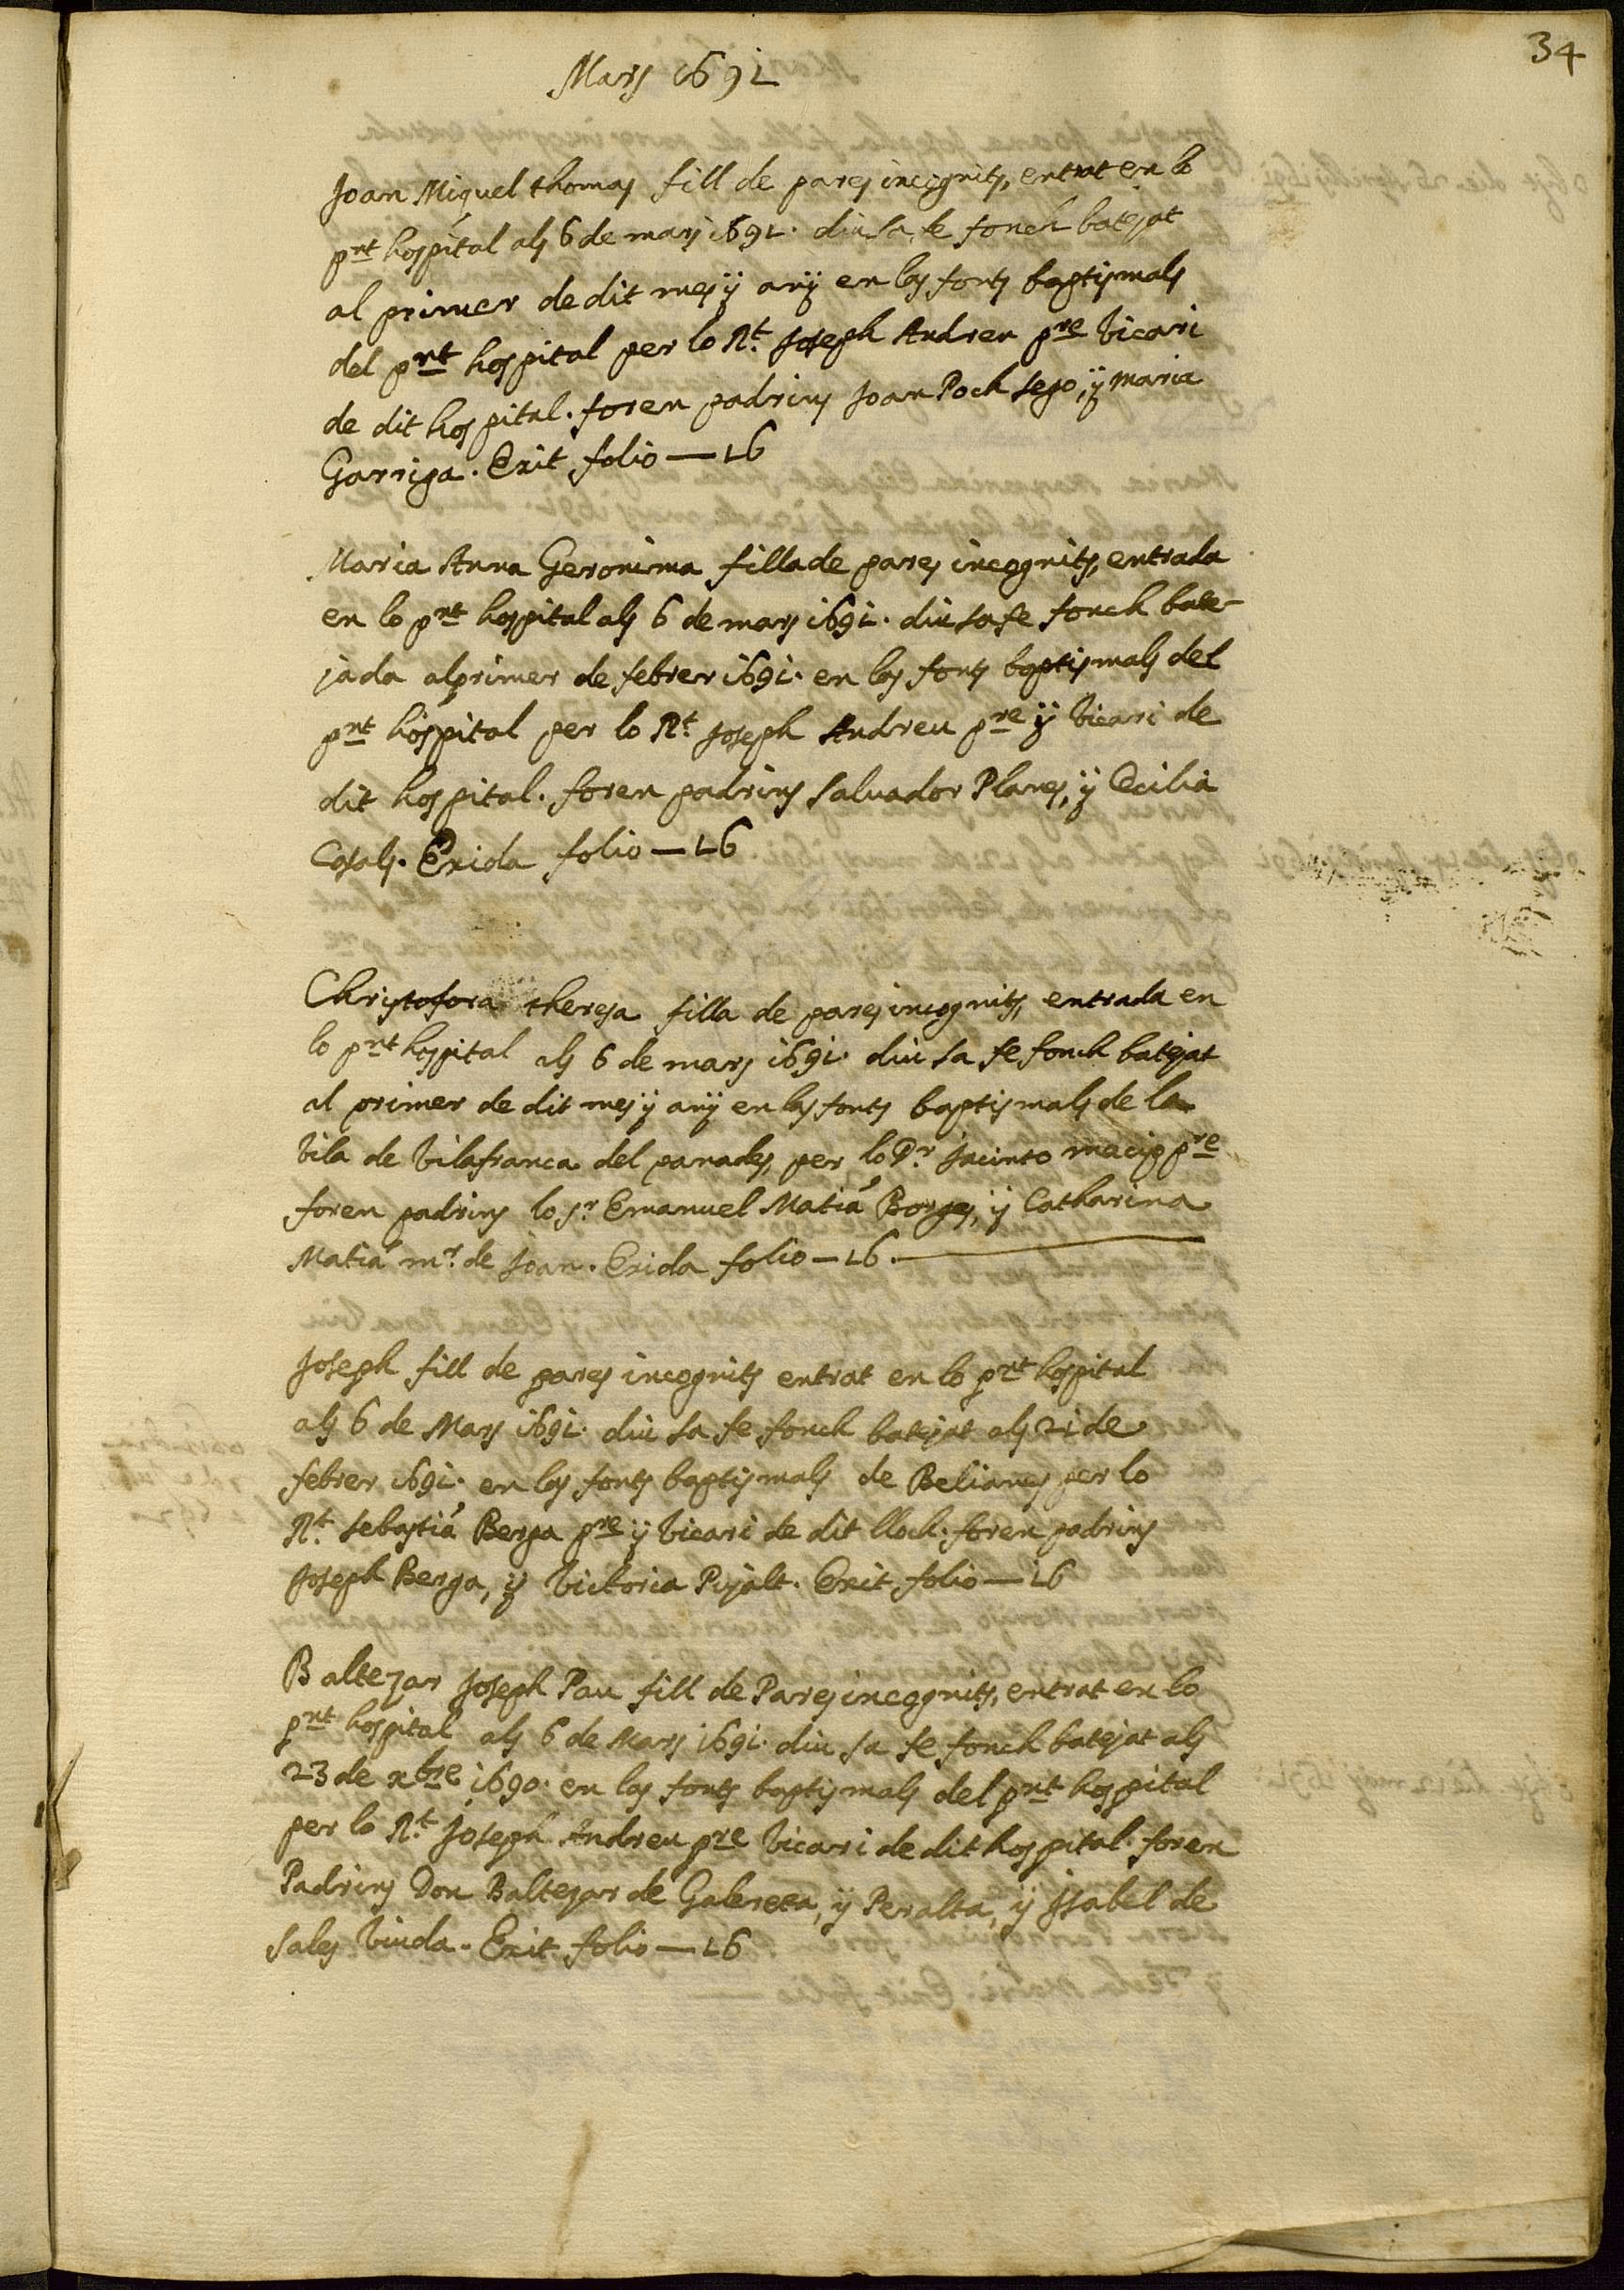 34
Mars 1691
Joan Miquel thomas fill de pares incognits, entrat en lo
pnt hospital als 6 de mars 1691. diu sa fe fonch batejat
al primer de dit mes ÿ anÿ en las fonts baptismals
del pnt hospital per lo Rt. Joseph Andreu pre Vicari
de dit hospital. foren padrins Joan Poch sego, ÿ maria
Garriga. Exit folio — 16
Maria Anna Geronima filla de pares incognits, entrada
en lo pnt hospital als 6 de mars 1691. diu sa fe fonch bate-
jada al primer de febrer 1691. en las fonts baptismals del
pnt hospital per lo Rt. Joseph Andreu pre ÿ Vicari de
dit hospital. foren padrins Salvador Planes, ÿ Cecilia
Casals. Exida folio — 16
Christofora theresa filla de pares incognits, entrada en
lo pnt hospital als 6 de mars 1691. diu sa fe fonch batejat
al primer de dit mes ÿ anÿ en las fonts baptismals de la
Vila de Vilafranca del panades, per lo Dr. Jacinto macip pre
foren padrins lo sr. Emanuel Matiá Borges, ÿ Catharina
Matiá mr. de Joan. Exida folio — 16.
Joseph fill de pares incognits entrat en lo pnt hospital
als 6 de Mars 1691. diu sa fe fonch batejat als 21 de
febrer 1691. en las fonts baptismals de Belianes per lo
Rt. Sebastiá Berga pre ÿ Vicari de dit lloch. foren padrins
Joseph Berga, ÿ Victoria Pujalt. Exit folio — 16
Baltezar Joseph Pau fill de Pares incognits, entrat en lo
pnt hospital als 6 de Mars 1691. diu sa fe fonch batejat als
23 de xbre 1690. en las fonts baptismals del pnt hospital
per lo Rt. Joseph Andreu pre Vicari de dit hospital. foren
Padrins Don Baltezar de Galereta, ÿ Peralta, ÿ Isabel de
Sales Viuda. Exit folio — 16